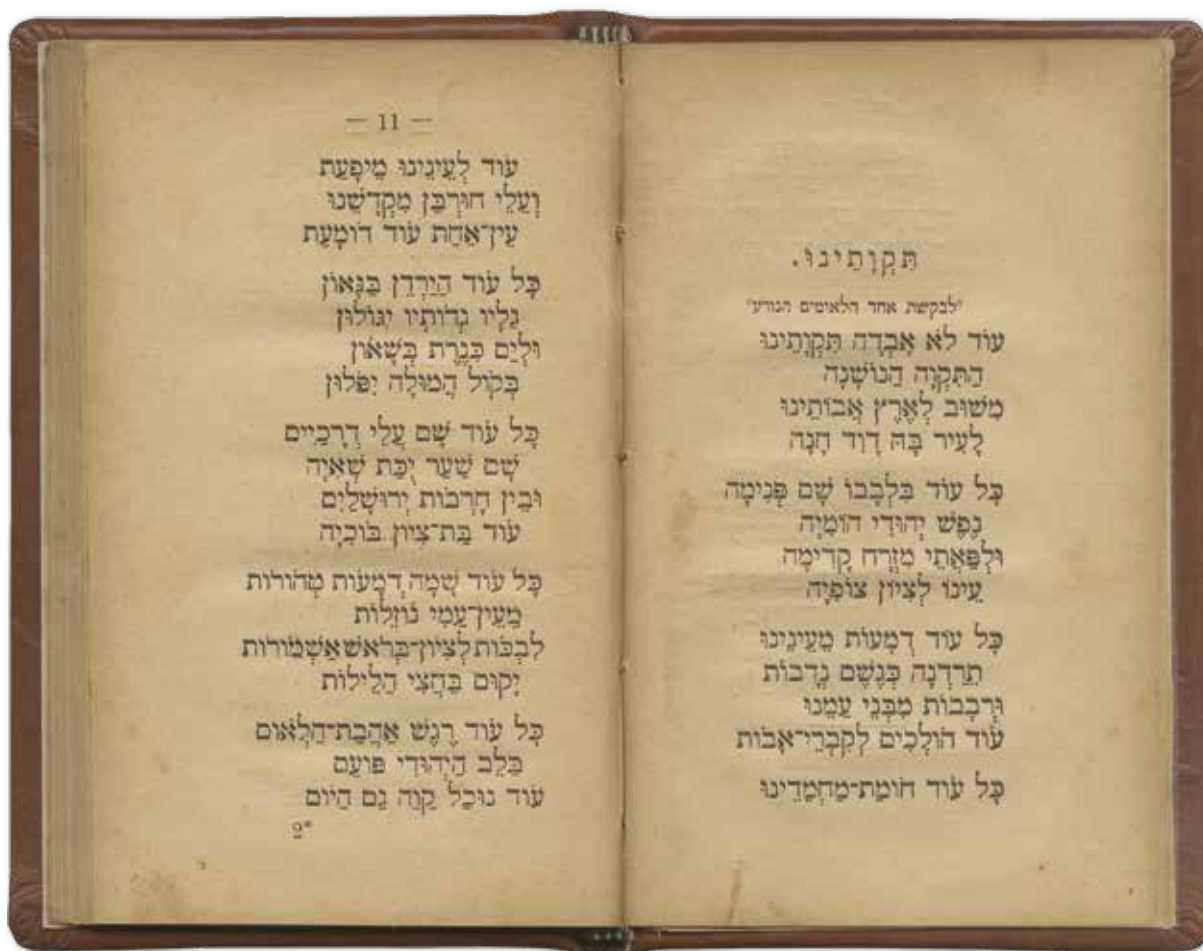 תִּקְוָתֵינוּ.
"לבקשת אחד הלאומים הנודע"
עוֹד לֹא אָבְדָה תִּקְוָתֵינוּ
הַתִּקְוָה הַנּוֹשָׁנָה
מִשּׁוּב לְאֶרֶץ אֲבוֹתֵינוּ
לָעִיר בָּהּ דָוִד חָנָה
כָּל עוֹד בִּלְבָבוֹ שָׁם פְּנִימָה
נֶפֶשׁ יְהוּדִי הוֹמִיָה
וּלְפַאֲתֵי מִזְרָח קָדִימָה
עֵינוֹ לְצִיוֹן צוֹפִיָה
כָּל עוֹד דְמָעוֹת מֵעֵינֵינוּ
תֵּרַדְנָה כְּגֶשֶׁם נְדָבוֹת
וּרְבָבוֹת מִבְּנֵי עַמֵנוּ
עוֹד הוֹלְכִים לְקִבְרֵי־אָבוֹת
כָּל עוֹד חוֹמַת־מַחְמַדֵינוּ
— 11 —
עוֹד לְעֵינֵינוּ מֵיפָעַת
וַעֲלֵי חוּרְבַּן מִקְדָשֵׁנוּ
עַיִן־אַחַת עוֹד דוֹמָעַת
כָּל עוֹד הַיַרְדֵן בְּגָאוֹן
גַלָיו גְדוֹתָיו יִגוֹלוּן
וּלְיַם כִּנֶרֶת בְּשָׁאוֹן
בְּקוֹל הֲמוּלָה יִפֹּלוּן
כָּל עוֹד שָׁם עֲלֵי דְרָכַיִם
שָׁם שַׁעַר יֻכַּת שְׁאִיָה
וּבֵין חָרְבוֹת יְרוּשָׁלַיִם
עוֹד בַּת־צִיוֹן בּוֹכִיָה
כָּל עוֹד שָׁמָה דְמָעוֹת טְהוֹרוֹת
מֵעֵין־עַמִי נוֹזְלוֹת
לִבְכּוֹת לְצִיוֹן־בְּרֹאשׁ אַשְׁמוֹרוֹת
יָקוּם בַּחֲצִי הַלֵילוֹת
כָּל עוֹד רֶגֶשׁ אַהֲבַת־הַלְאוֹם
בְּלֵב הַיְהוּדִי פּוֹעֵם
עוֹד נוּכַל קַוֵה גַם הַיוֹם
2*